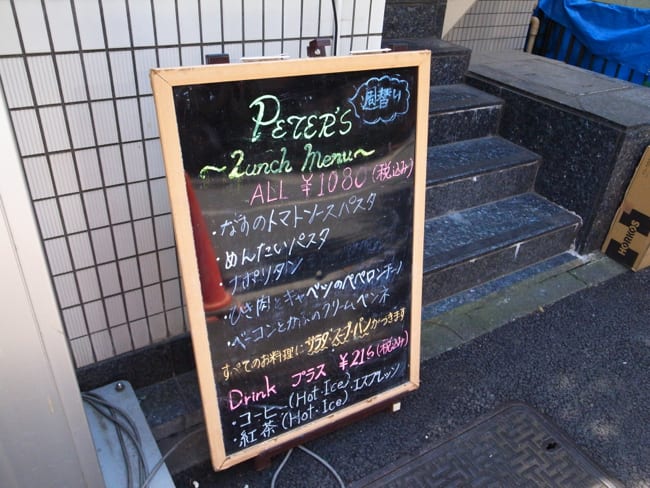 PETER'S
週替り
~Lunch Menu~
ALL ¥1080(税込み)
・なすのトマトソースパスタ
・めんたいパスタ
・ナポリタン
・ひき肉とキャベツのペペロンチーノ
・ベーコンとかぶのクリームペンネ
すべてのお料理にサラダ・スープ・パンがつきます
Drink プラス ¥216(税込み)
・コーヒー(Hot・Ice)・エスプレッソ
・紅茶(Hot・Ice)
HORKOS